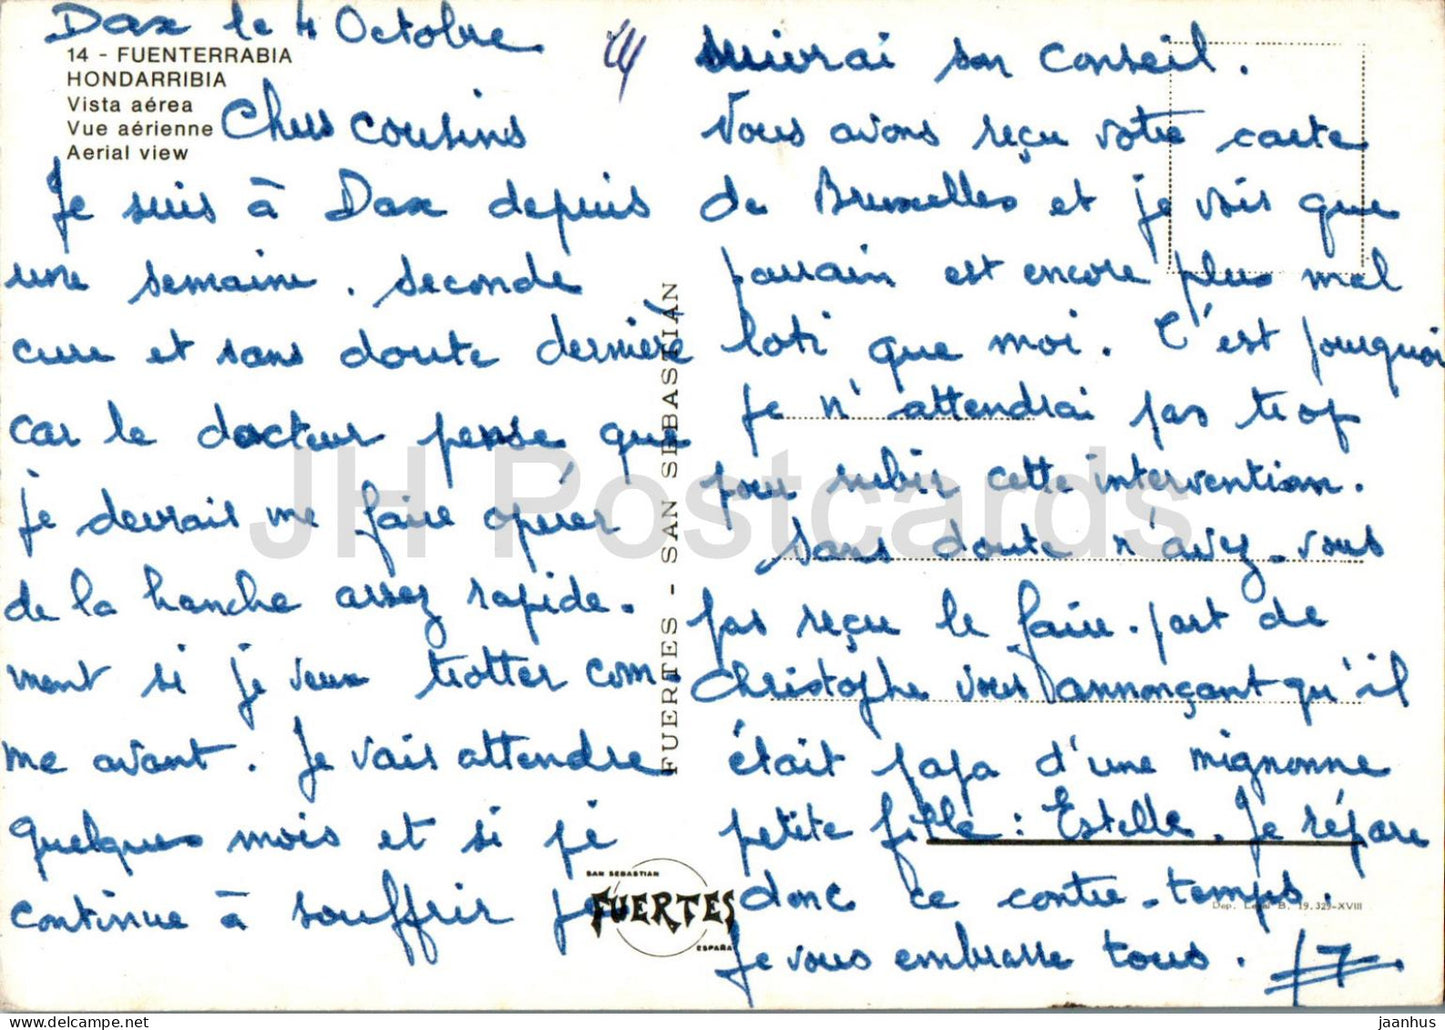 Dax le 4 Octobre
14 - FUENTERRABIA
HONDARRIBIA
Vista aérea
Vue aérienne
Aerial view
Chers cousins
Je suis à Dax depuis
une semaine. Seconde
cure et sans doute dernière
car le docteur pense que
je devrais me faire opérer
de la hanche assez rapide-
ment si je veux trotter com-
me avant. Je vais attendre
quelques mois et si je
continue à souffrir je
suivrai son conseil.
Vous avons reçu votre carte
de Bruxelles et je vois que
parrain est encore plus mal
loti que moi. C'est pourquoi
je n'attendrai pas trop
pour subir cette intervention.
Sans doute n'avez-vous
pas reçu le faire-part de
Christophe vous annonçant qu'il
était papa d'une mignonne
petite fille : Estelle. Je répare
donc ce contre-temps.
Je vous embrasse tous.
FUERTES - SAN SEBASTIÁN
SAN SEBASTIAN
FUERTES
ESPAÑA
Dep. Legal B. 19.329-XVIII
JH Postcards
jaanhus